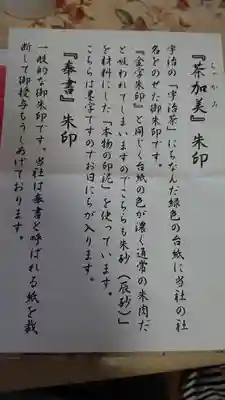 ちゃかみ
『茶加美』朱印
宇治の「宇治茶」にちなんだ緑色の台紙に当社の社
名をのせた御朱印です。
『金字朱印』と同じく台紙の色が濃く通常の朱肉だ
と吸われてしまいますのでこちらも朱砂（辰砂）」
を材料にした「本物の印泥」を使っています。
こちらは墨字ですのでお日にちが入ります。
『奉書』朱印
一般的な御朱印です。当社は奉書と呼ばれる紙を裁
断して御授与もうしあげております。